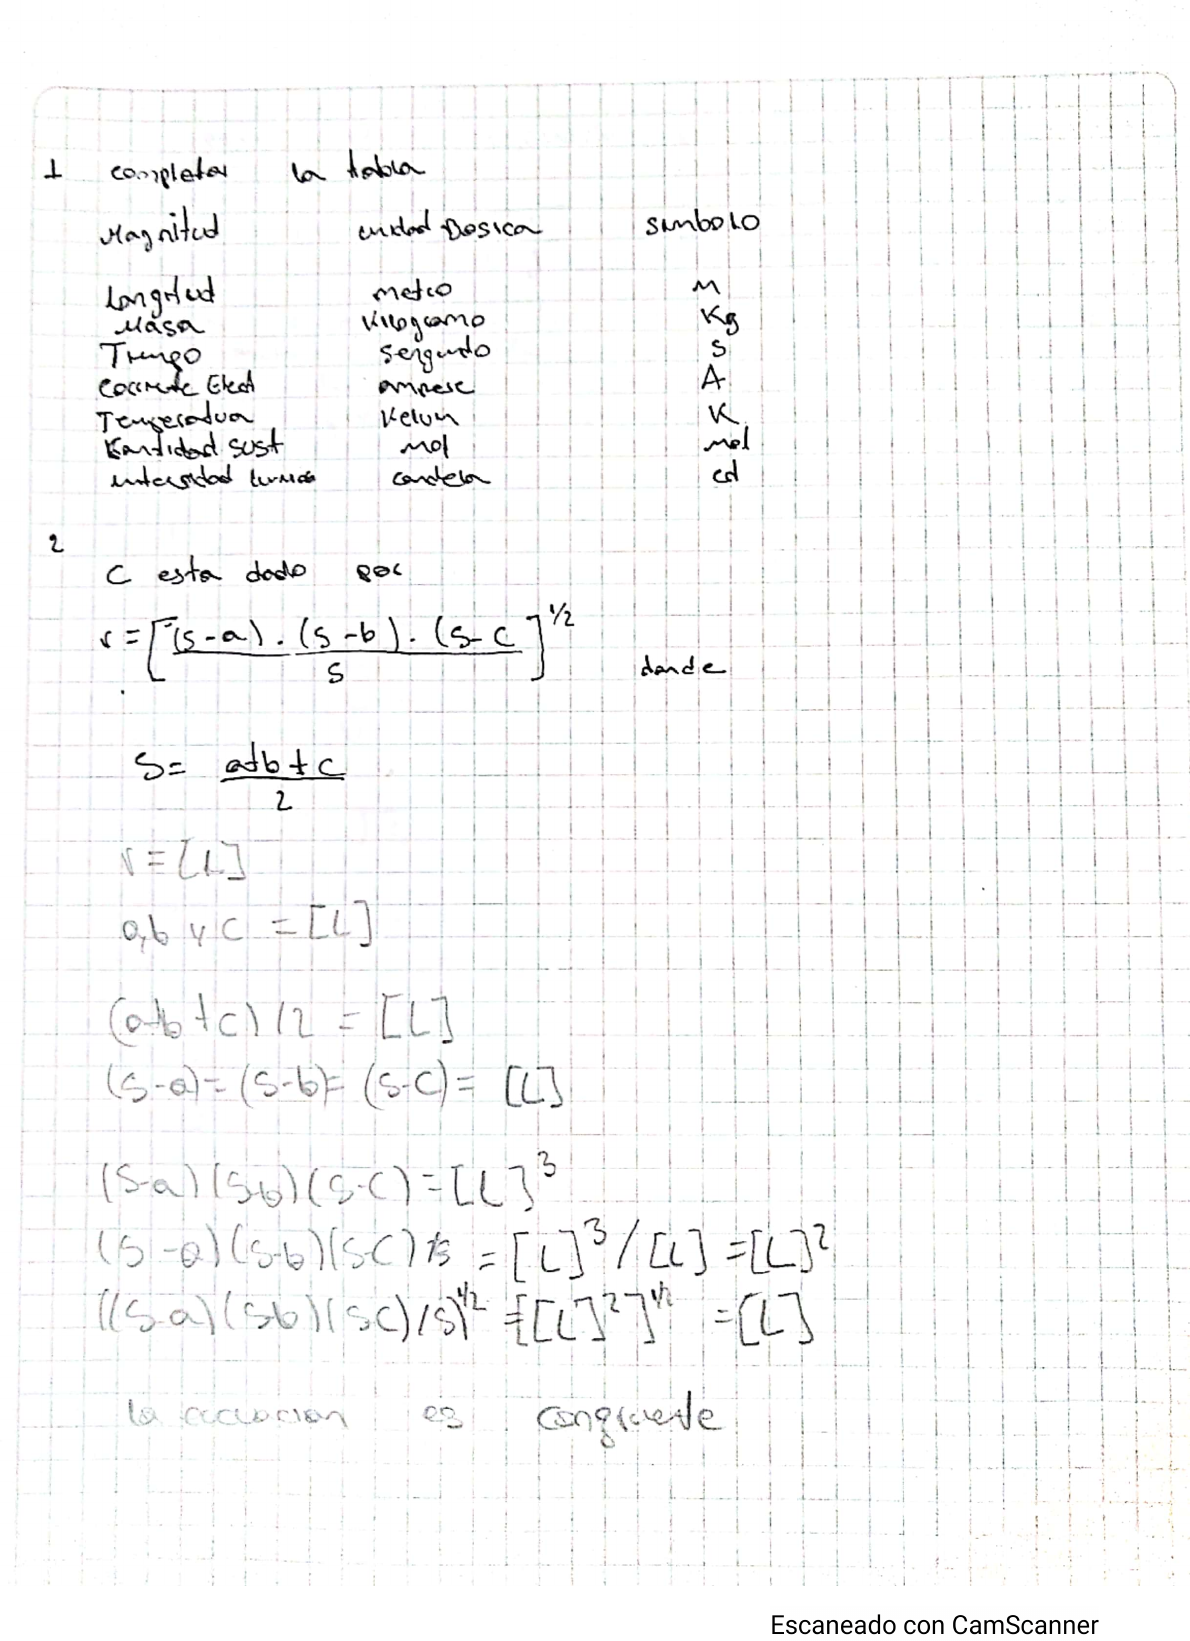 1 completar la tabla
Magnitud unidad Basica simbolo
Longitud metro M
Masa Kilogramo Kg
Tiempo segundo S
Corriente Elect ampere A
Temperatura Kelvin K
Kantidad sust mol mol
intensidad candela cd
2
C esta dado por
r = [(s-a) . (s-b) . (s-c / s]^1/2 donde
S = a+b+c / 2
r = [L]
a,b y c = [L]
(a+b+c)/2 = [L]
(s-a) = (s-b) = (s-c) = [L]
(s-a)(s-b)(s-c) = [L]^3
(s-a)(s-b)(s-c)/s = [L]^3 / [L] = [L]^2
((s-a)(s-b)(s-c)/s)^1/2 = [[L]^2]^1/2 = [L]
la es congruente
Escaneado con CamScanner